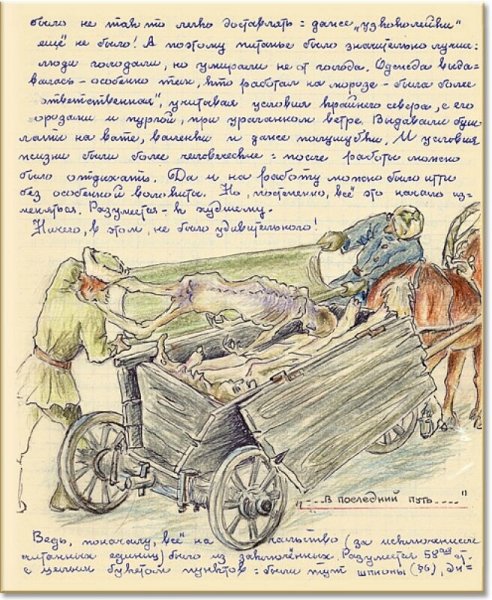 было не так то легко доставлять: даже „узкоколейки"
ещё не было! А поэтому питанье было значительно лучше:
люди голодали, но умирали не от голода. Одежда выда-
валась - особенно тем, кто работал на морозе - была более
„ответственная", учитывая условия крайнего севера, с его
морозами и пургой, при ураганном ветре. Выдавали буш-
латы на вате, валенки и даже полушубки. И условия
жизни были более человеческие: после работы можно
было отдыхать. Да и на работу можно было идти
без особенной волокиты. Но, постепенно, всё это начало из-
меняться. Разумеется - к худшему.
Ничего, в этом, не было удивительного!
„...В последний путь......"
Ведь, поначалу, всё на льство (за исключением
считанных единиц) было из заключённых. Разумеется 58ой ст.
с целым букетом пунктов: были тут шпионы (§6), ди-